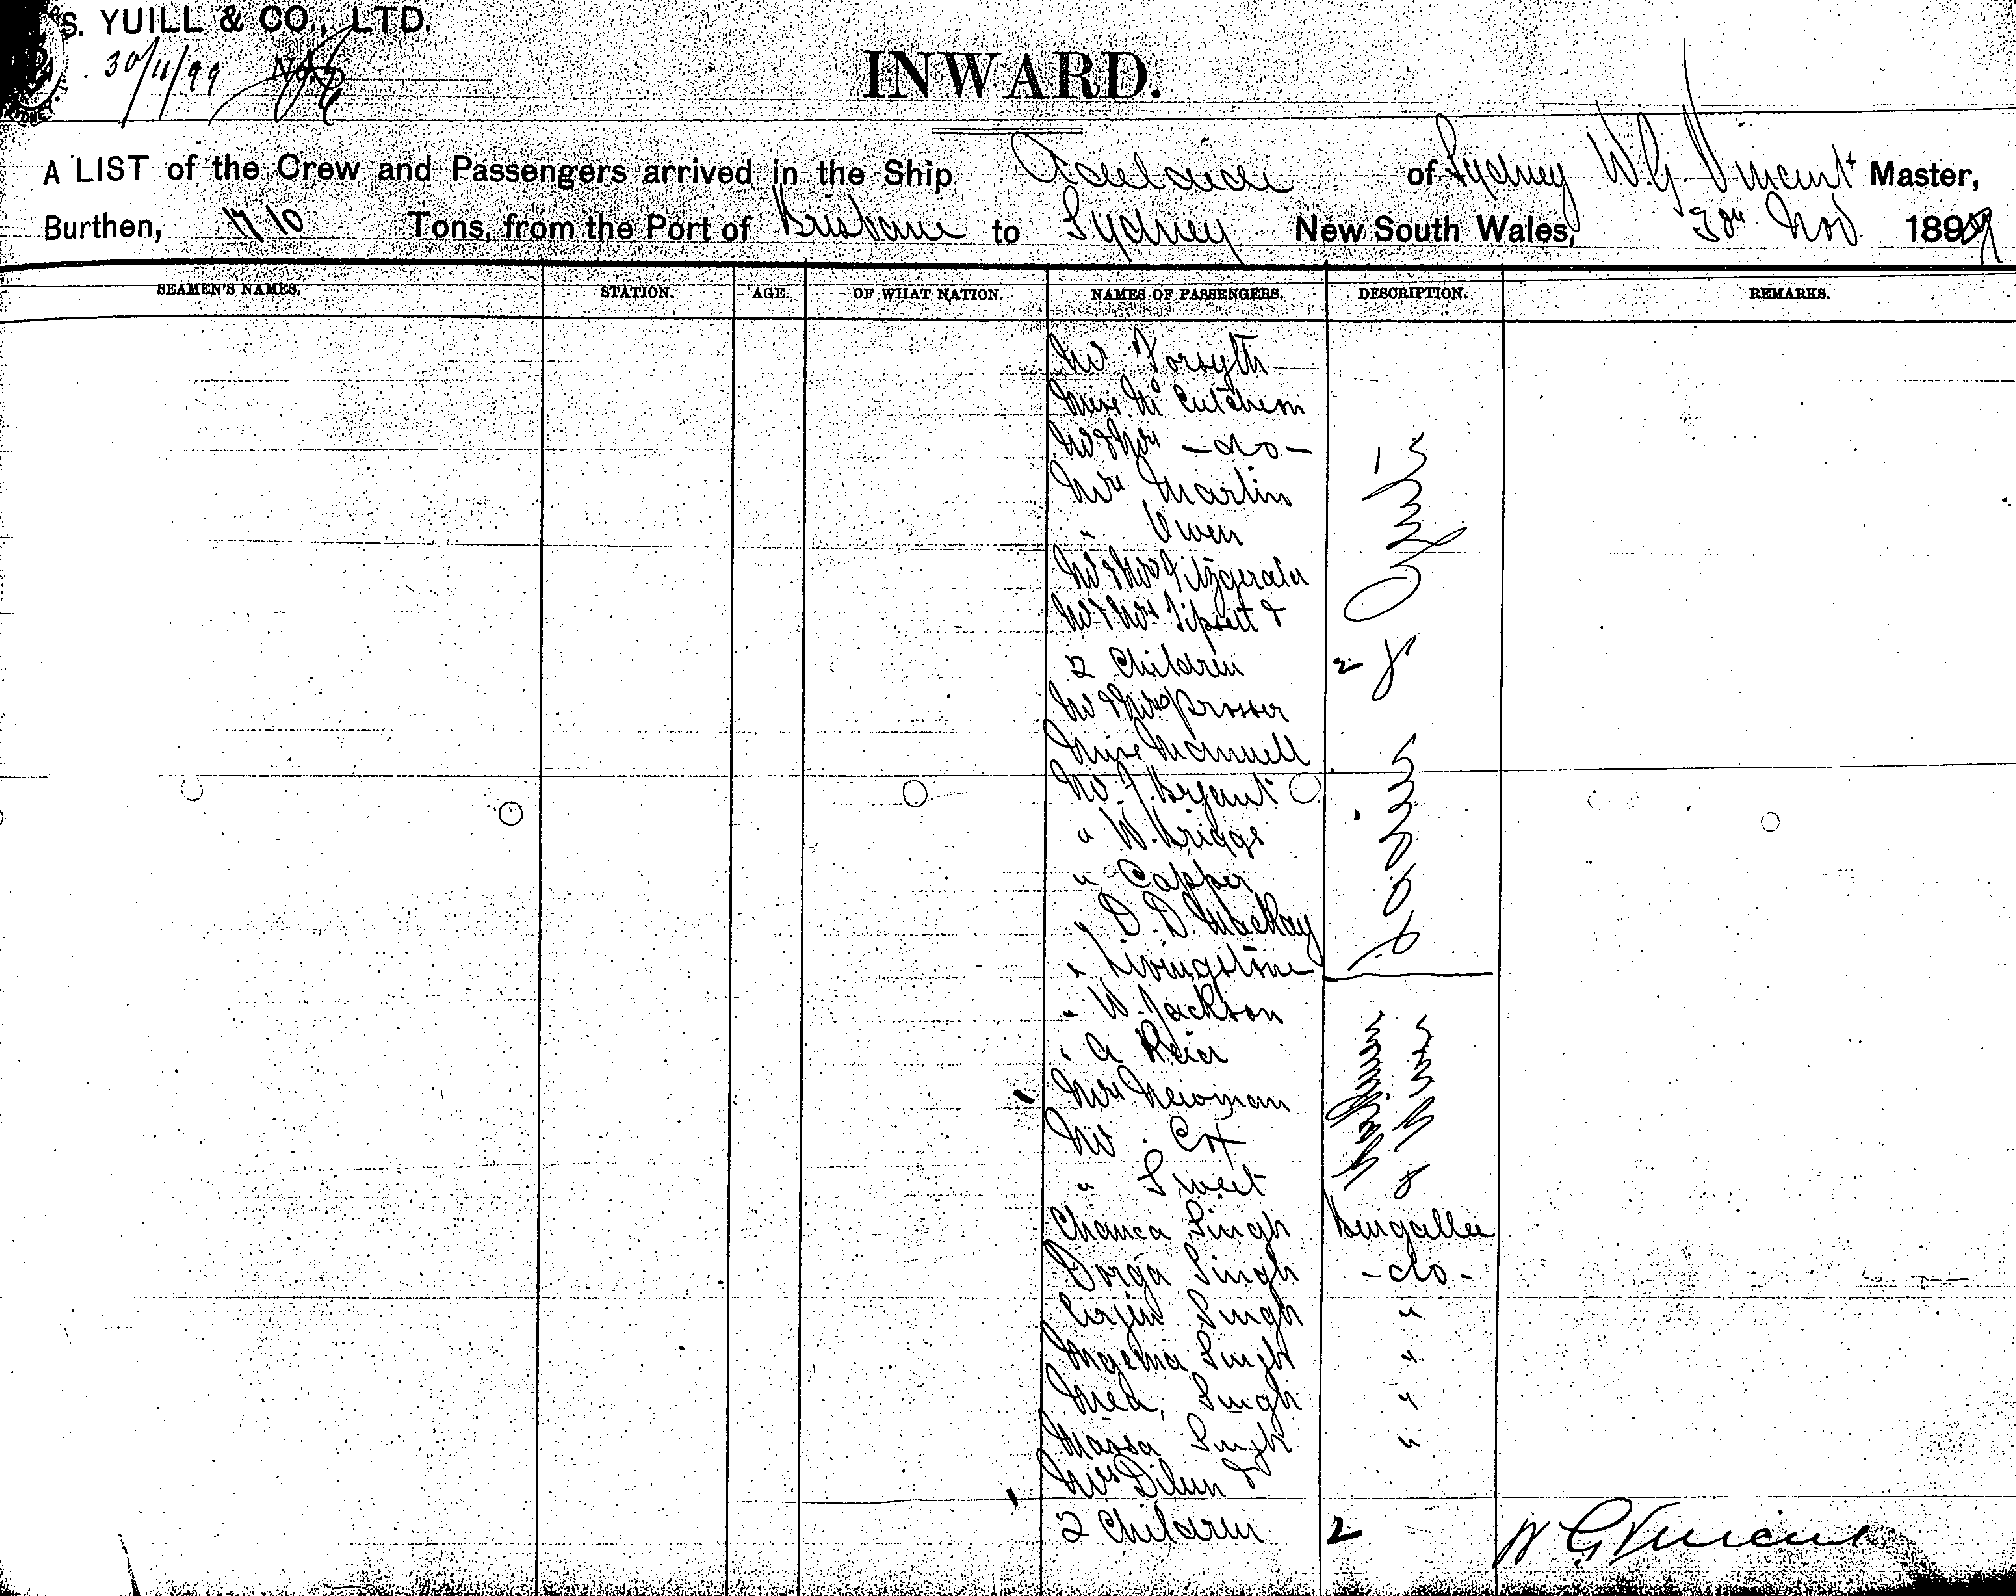 S. YUILL & CO., LTD.
30/11/99
INWARD.
A LIST of the Crew and Passengers arrived in the Ship Adelaide of Sydney W.G. Vincent Master,
Burthen, 1710 Tons, from the Port of Brisbane to Sydney New South Wales, 30th Nov 1899
SEAMEN'S NAMES. STATION. AGE. OF WHAT NATION. NAMES OF PASSENGERS. DESCRIPTION. REMARKS.
Mr Forsyth
Miss McCutcheon
Mr & Mrs -do-
Mrs Martin
" Owen
Mr & Mrs Fitzgerald
Mr & Mrs &
2 Children 2
Mr & Mrs Prosser
Miss
Mr J. Bryant
" W. Briggs
" Copper
" D. D. Mackay
" Livingstone
" W. Jackson
" A
Mrs Newman
Mr Cox
" Sweet
Singh Bengallee
Dorga Singh -do-
Singh "
Singh "
Singh "
Massa Singh "
Mrs &
2 Children 2
W G Vincent